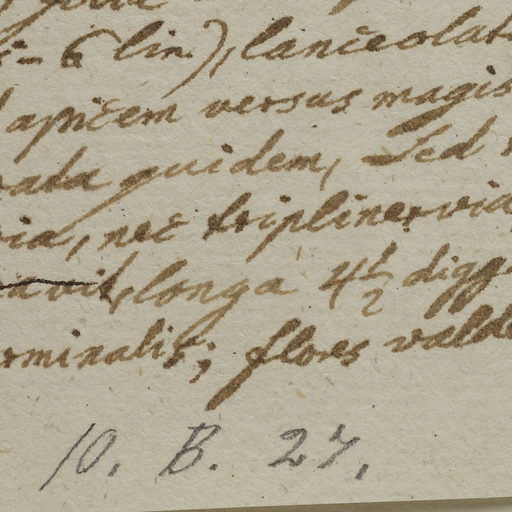 5-6 lin.), lanceolat
apicem versus magis
quidem, Sed
nec triplinervia
longa 4 1/2 digg
minalis; flores valde
10. B. 27.